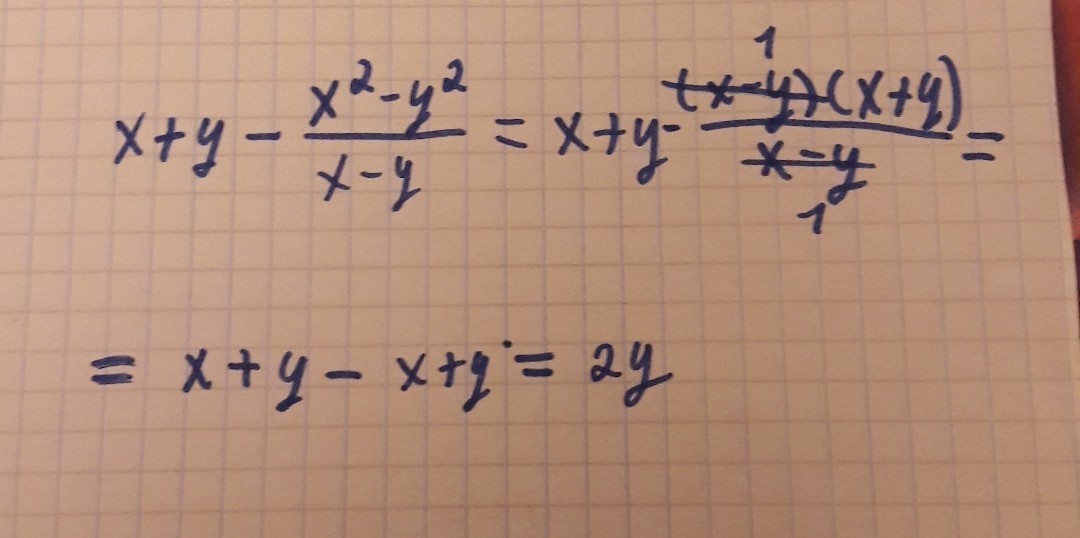 x+y - \frac{x²-y²}{x-y} = x+y - \frac{\cancel{(x-y)}^{1}(x+y)}{\cancel{x-y}_{1}} =
= x+y - x+y = 2y